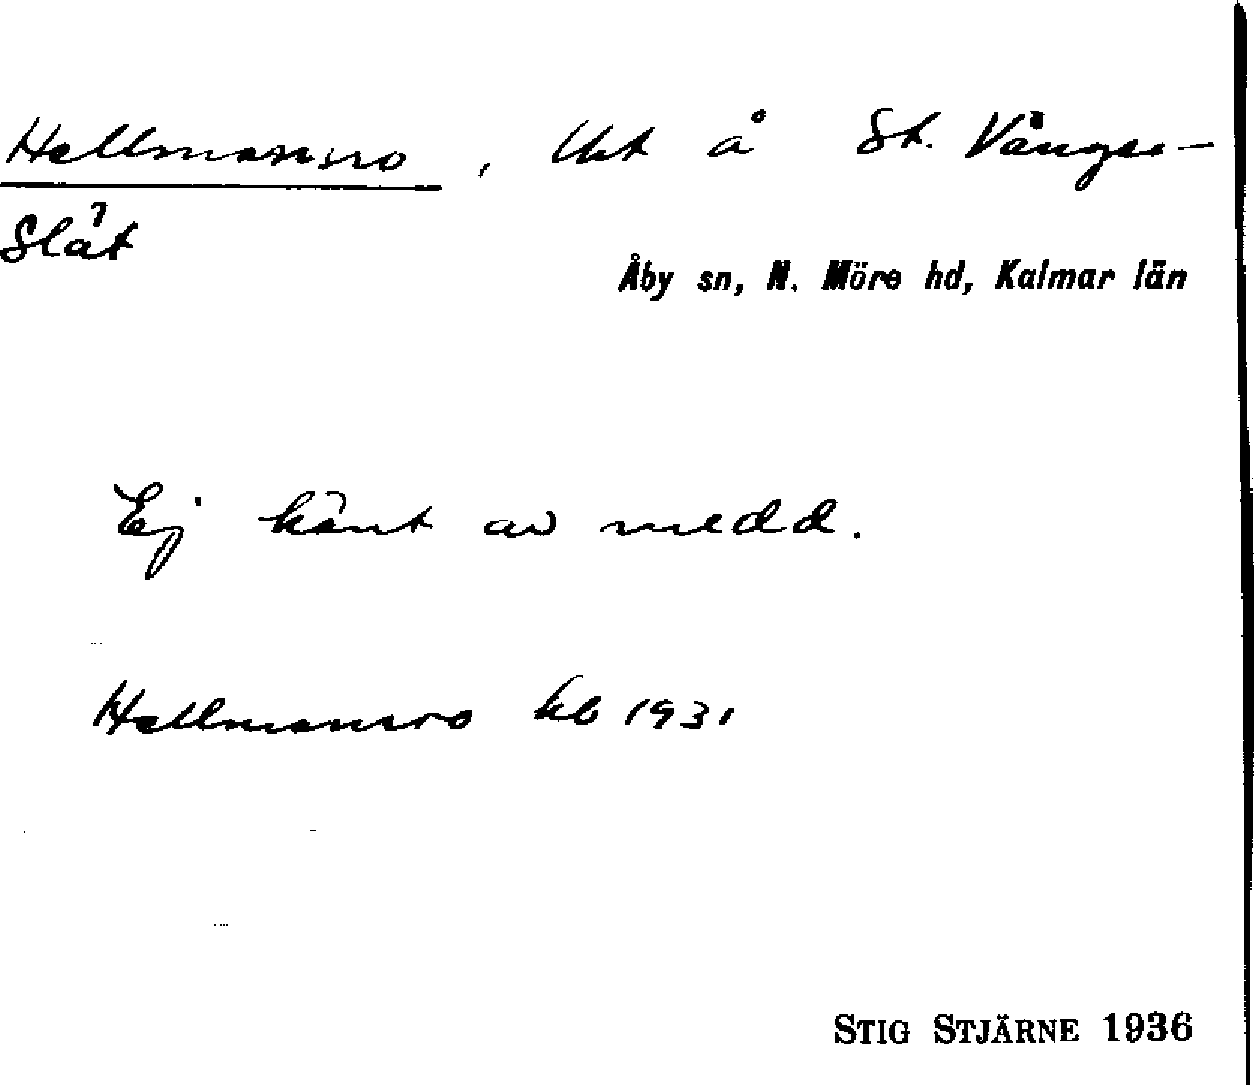 Hellmansro, Lht å St. Vånger-
slät
Åby sn, N. Möre hd, Kalmar län
Ej känt av medd.
Hellmansro kb 1931
STIG STJÄRNE 1936